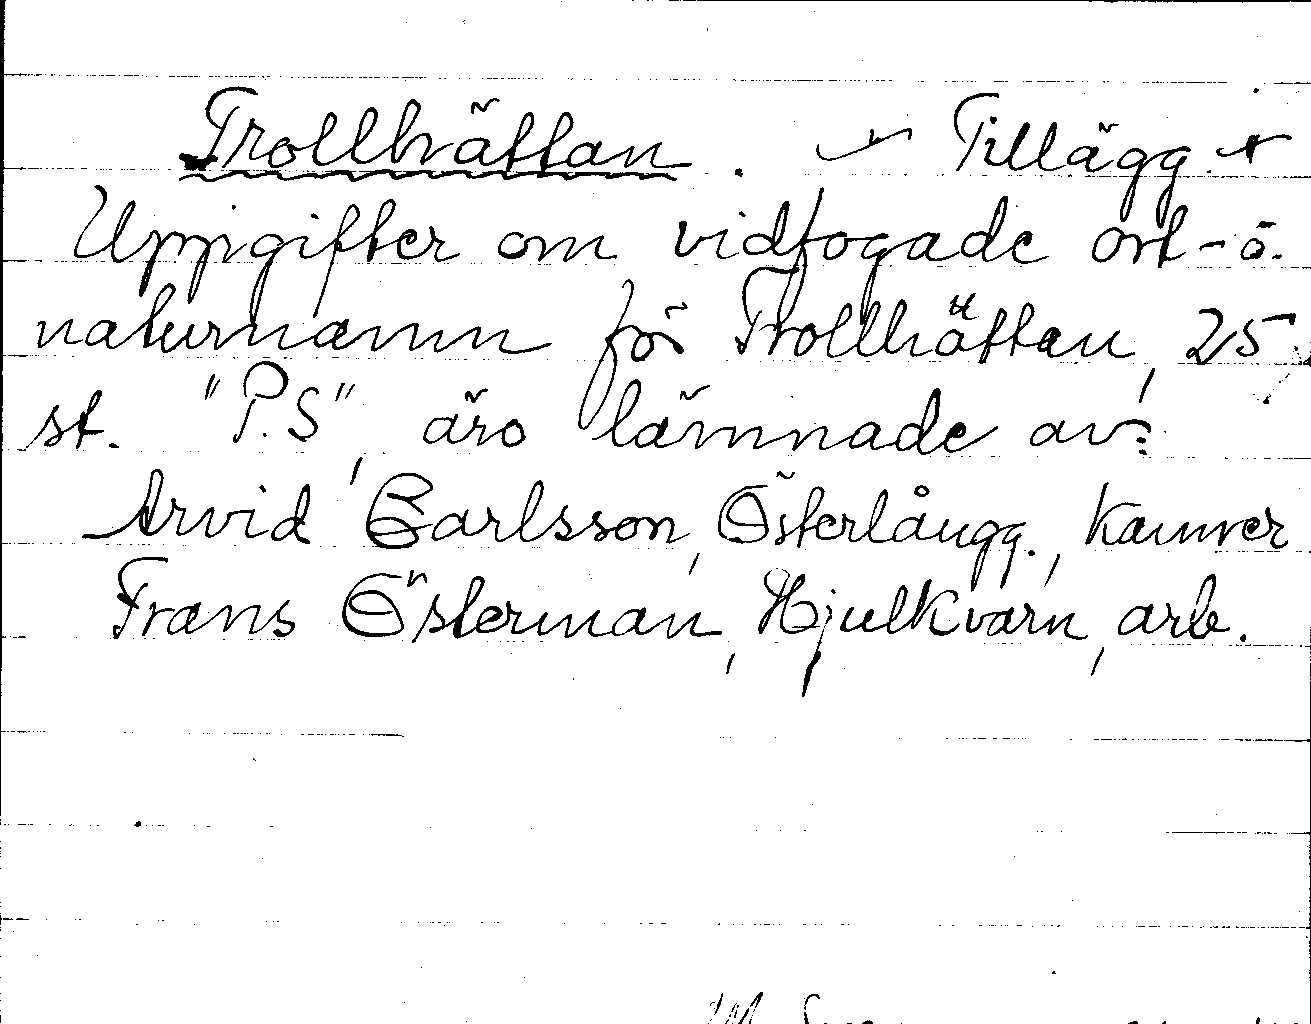 Trollhättan. Tillägg.
Uppgifter om vidfogade ort- ö.
naturnamn för Trollhättan, 25
st. "P.S", äro lämnade av:
Arvid Carlsson, Österlångg., Kamrer
Frans Österman, Hjulkvarn, arb.